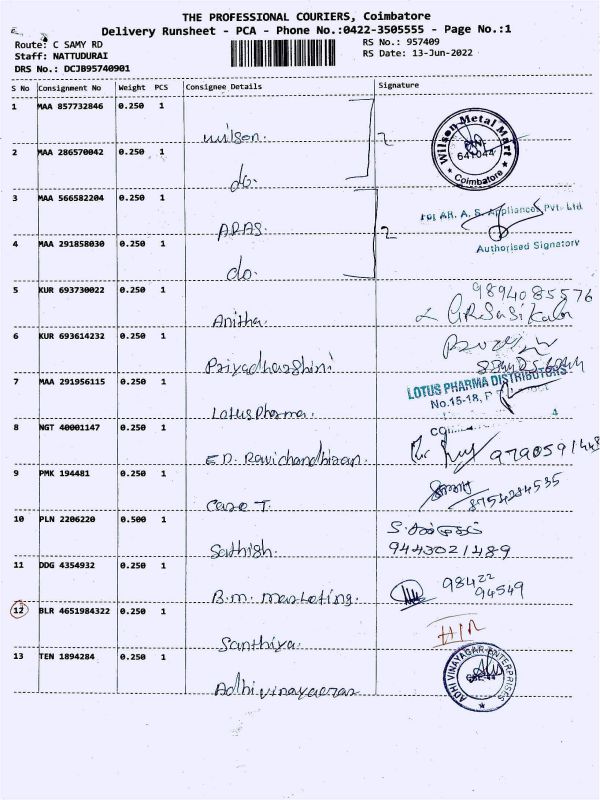 THE PROFESSIONAL COURIERS, Coimbatore
Delivery Runsheet - PCA - Phone No.:0422-3505555 - Page No.:1
Route: C SAMY RD
RS No.: 957409
Staff: NATTUDURAI
RS Date: 13-Jun-2022
DRS No.: DCJB95740901
S No Consignment No Weight PCS Consignee Details Signature
1 MAA 857732846 0.250 1 Wilson. 2
Wilson Metal Mart
641044
Coimbatore
2 MAA 286570042 0.250 1 do.
3 MAA 566582204 0.250 1 ARAS. 2
For AR. A. S. Appliances Pvt. Ltd
4 MAA 291858030 0.250 1 do.
Authorised Signatory
5 KUR 693730022 0.250 1 Anitha. 9894085576
G.R. Sasikala
6 KUR 693614232 0.250 1 Priyadharshini
7 MAA 291956115 0.250 1 Lotus Pharma.
LOTUS PHARMA DISTRIBUTORS
No.15-18,
8 NGT 40001147 0.250 1 E.D. Ravichandhiran.
9 PMK 194481 0.250 1 Care T. 8754284535
10 PLN 2206220 0.500 1 Sathish.
9443021489
11 DDG 4354932 0.250 1 B.M. Marketing. 98422
94549
12 BLR 4651984322 0.250 1 Santhiya.
13 TEN 1894284 0.250 1 Adhi vinayagar
ADHI VINAYAGAR ENTERPRISES